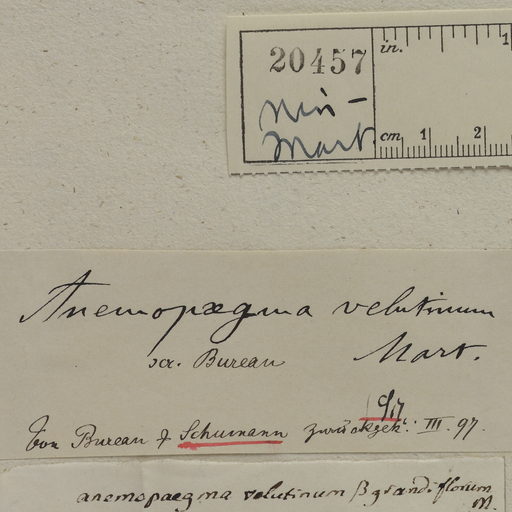 20457
in. 1
Min –
Mart.
cm 1 2
Anemopaegma velutinum
scr. Bureau Mart.
Von Bureau & Schumann zurückgek: III. 97.
anemopaegma velutinum β grandiflorum
M.